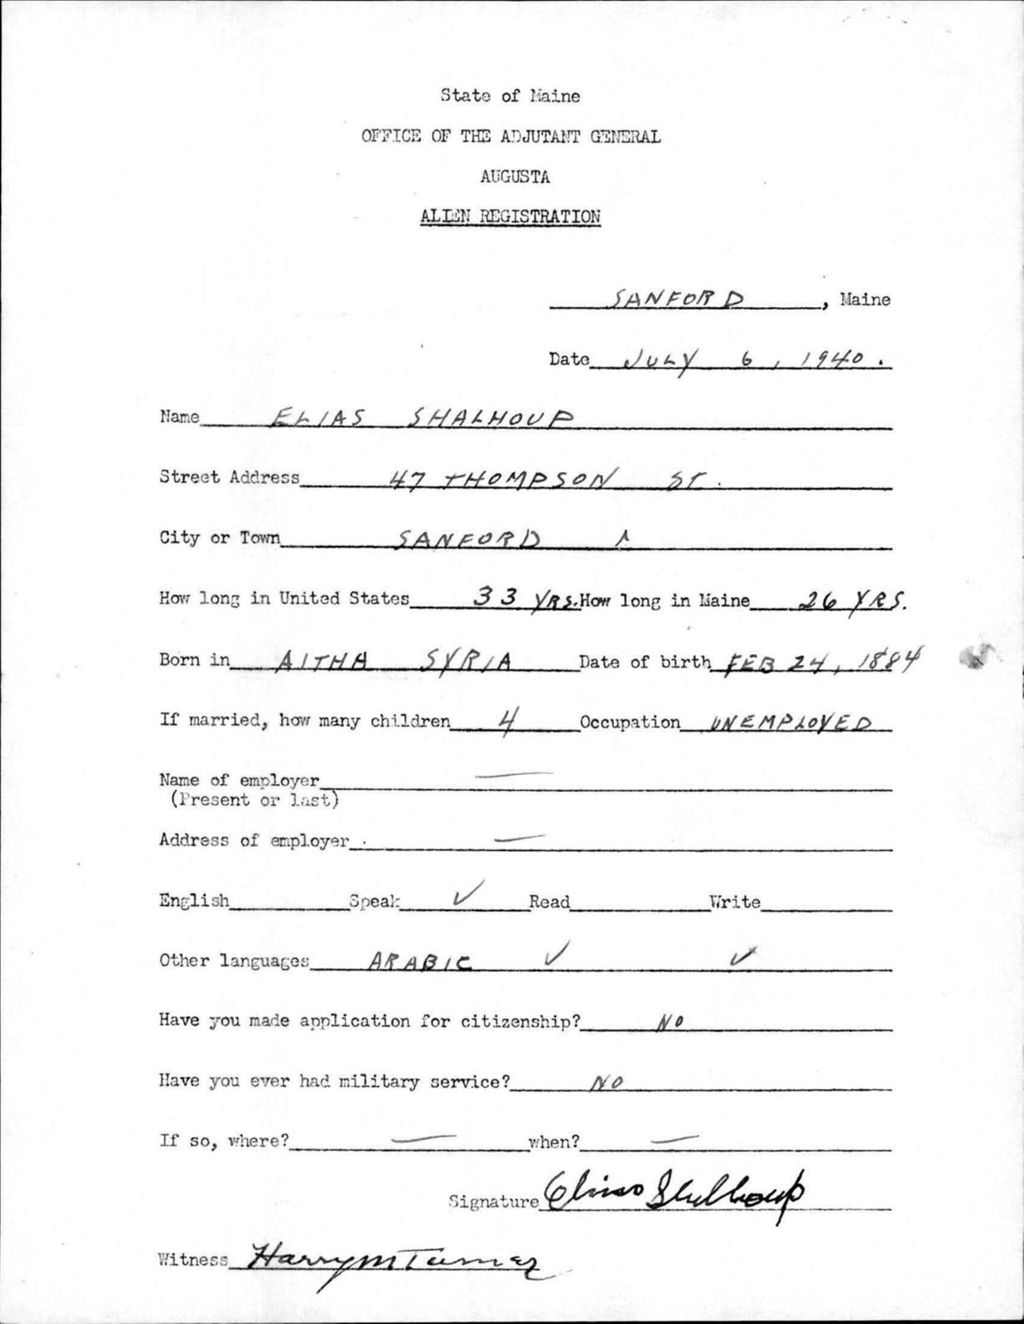 State of Maine
OFFICE OF THE ADJUTANT GENERAL
AUGUSTA
ALIEN REGISTRATION
SANFORD, Maine
Date JULY 6, 1940.
Name ELIAS SHALHOUP
Street Address 47 THOMPSON ST.
City or Town SANFORD
How long in United States 33 YRS. How long in Maine 26 YRS.
Born in AITHA SYRIA Date of birth FEB 24, 1884
If married, how many children 4 Occupation UNEMPLOYED
Name of employer —
(Present or last)
Address of employer —
English Speak ✓ Read Write
Other languages ARABIC ✓ ✓
Have you made application for citizenship? NO
Have you ever had military service? NO
If so, where? — when? —
Signature Elias Shalhoup
Witness Harry M Turner